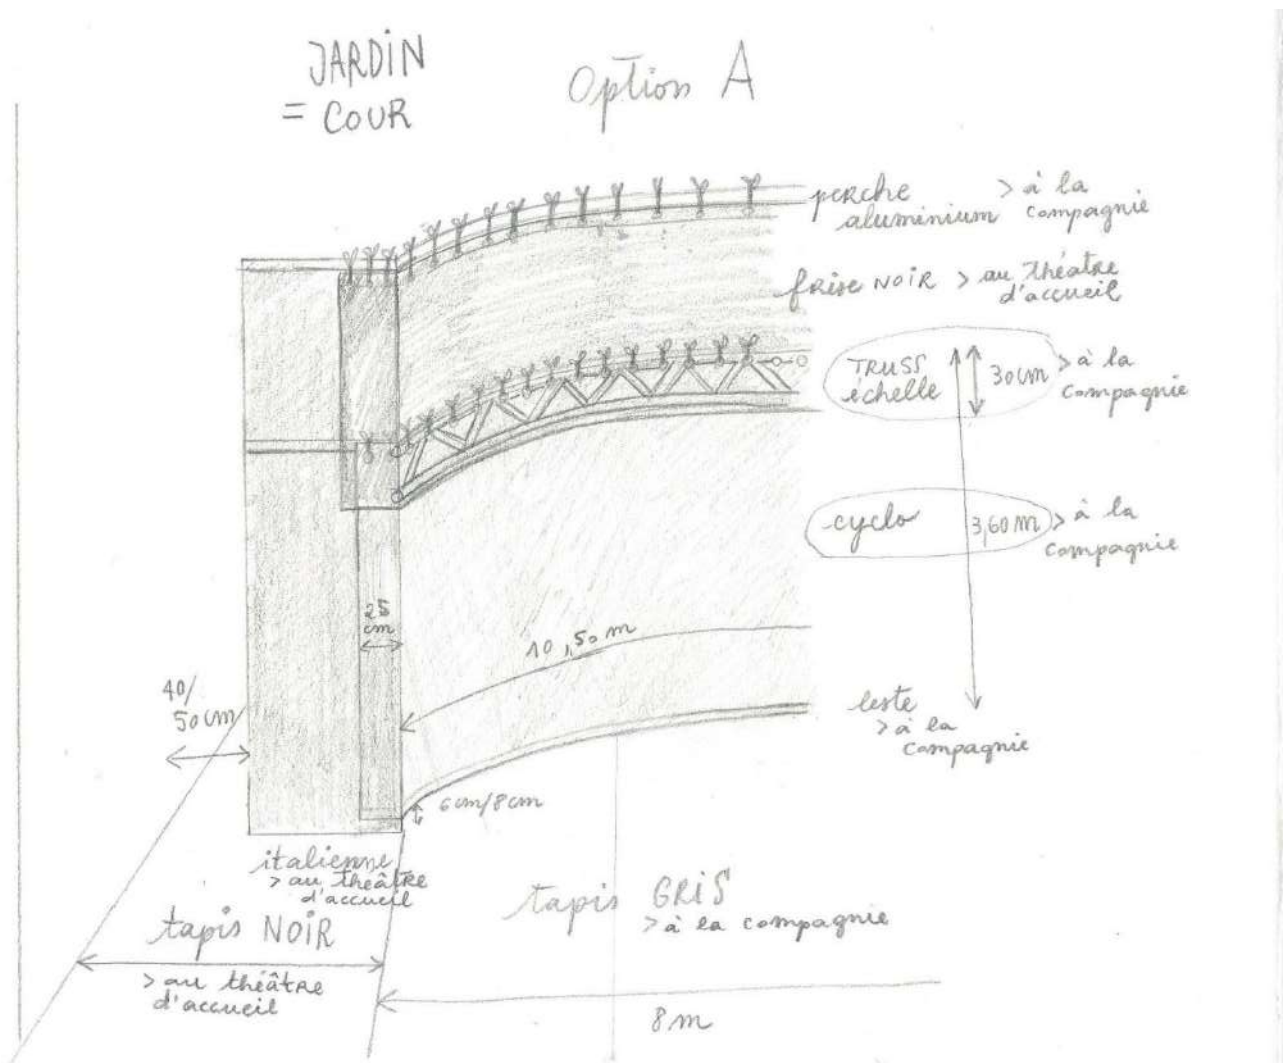 JARDIN
= COUR
Option A
perche > à la
aluminium compagnie
frise NOIR > au théatre
d'accueil
TRUSS
échelle
30cm
> à la
compagnie
cyclo
3,60m
> à la
compagnie
25
cm
10,50m
40/
50cm
leste
> à la
compagnie
6cm/8cm
italienne
> au théâtre
d'accueil
tapis NOIR
> au théâtre
d'accueil
tapis GRIS
> à la compagnie
8m